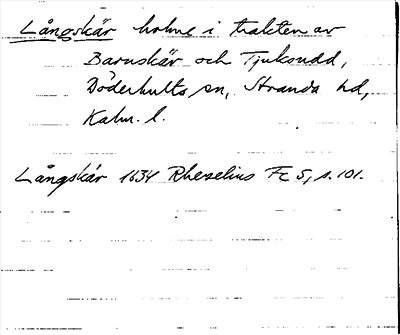 Långskär holme i trakten av
Barnskär och Tjuksudd,
Döderhults sn, Stranda hd,
Kalm. l.
Långskär 1634 Rhezelius Fc 5, s. 101.